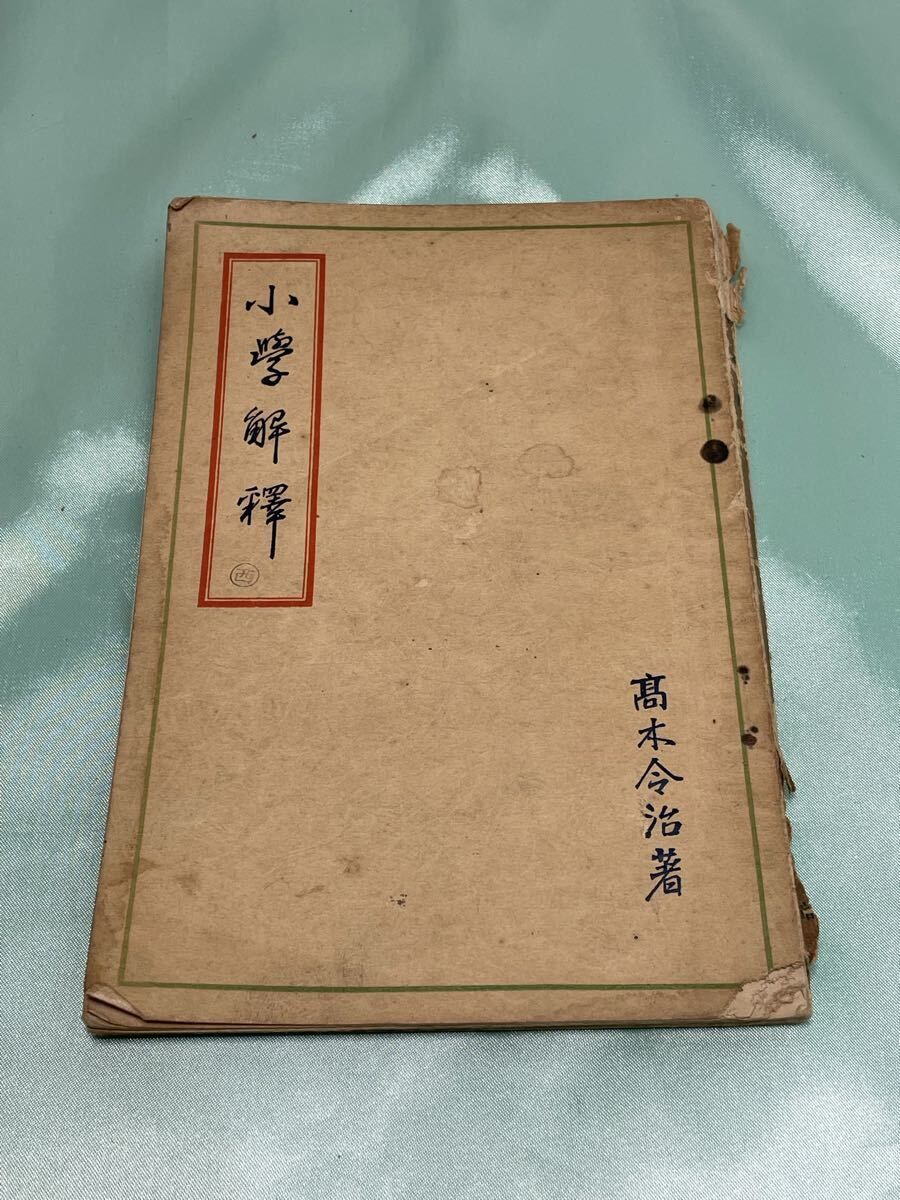 小學解釋
西
髙木令治著